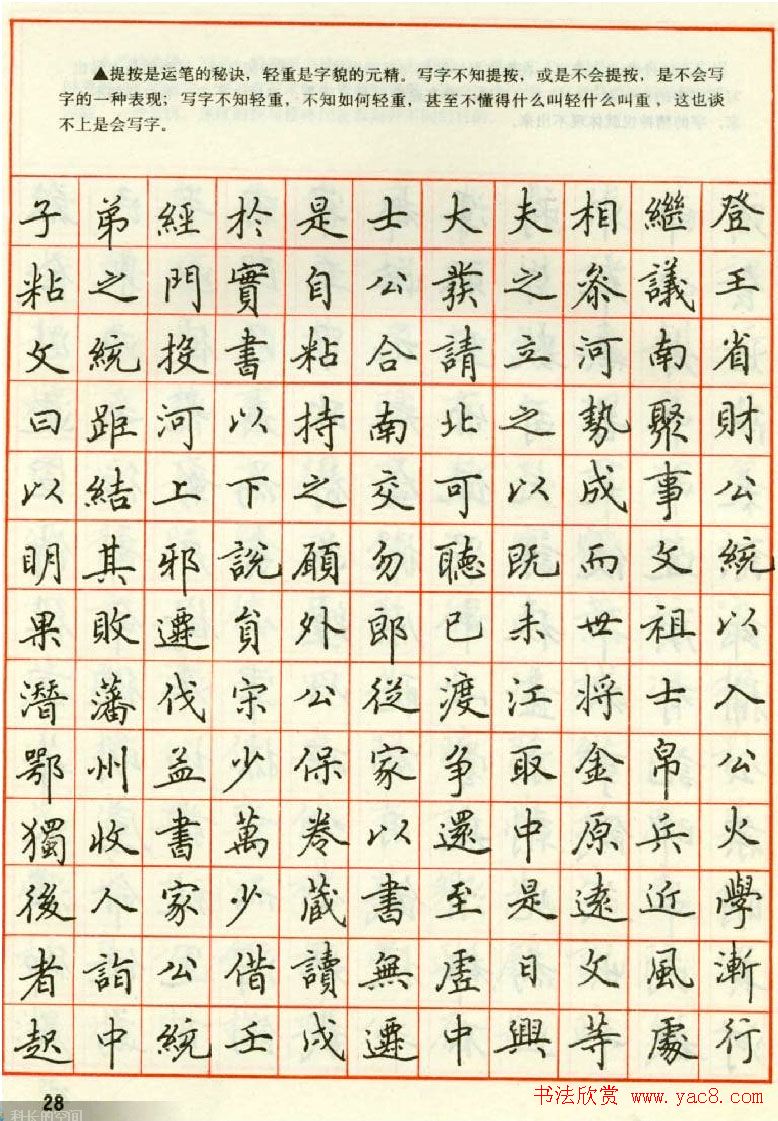 ▲提按是运笔的秘诀,轻重是字貌的元精。写字不知提按,或是不会提按,是不会写
字的一种表现;写字不知轻重,不知如何轻重,甚至不懂得什么叫轻什么叫重,这也谈
不上是会写字。
子弟經於是士大夫相繼登
粘之門實自公發之叅議王
文統投書粘合請立河南省
曰距河以持南北之勢聚財
以結上下之交可以成事公
明其邪說願勿聽既而文統
果敗遷貟外郎已未世祖以
潛藩伐宋公從渡江將士入
鄂州益少保家爭取金帛公
獨收書萬卷以還中原兵火
後人家少藏書至是遠近學
者詣公借讀無虛日文風漸
起中統壬戌遷中興等處行
28
科长的空间
书法欣赏 www.yac8.com